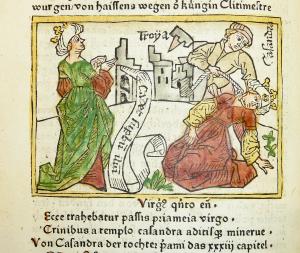 wurgen/von haissens wegen ð küngin Clitimestre
Troya
Casandra
Virgº qnto eñ·
Ecce trahebatur passis priameia virgo ·
Crinibus a templo casandra aditisq; minerue ·
Von Casandra der tochter p̄ami das xxxiij capitel ·